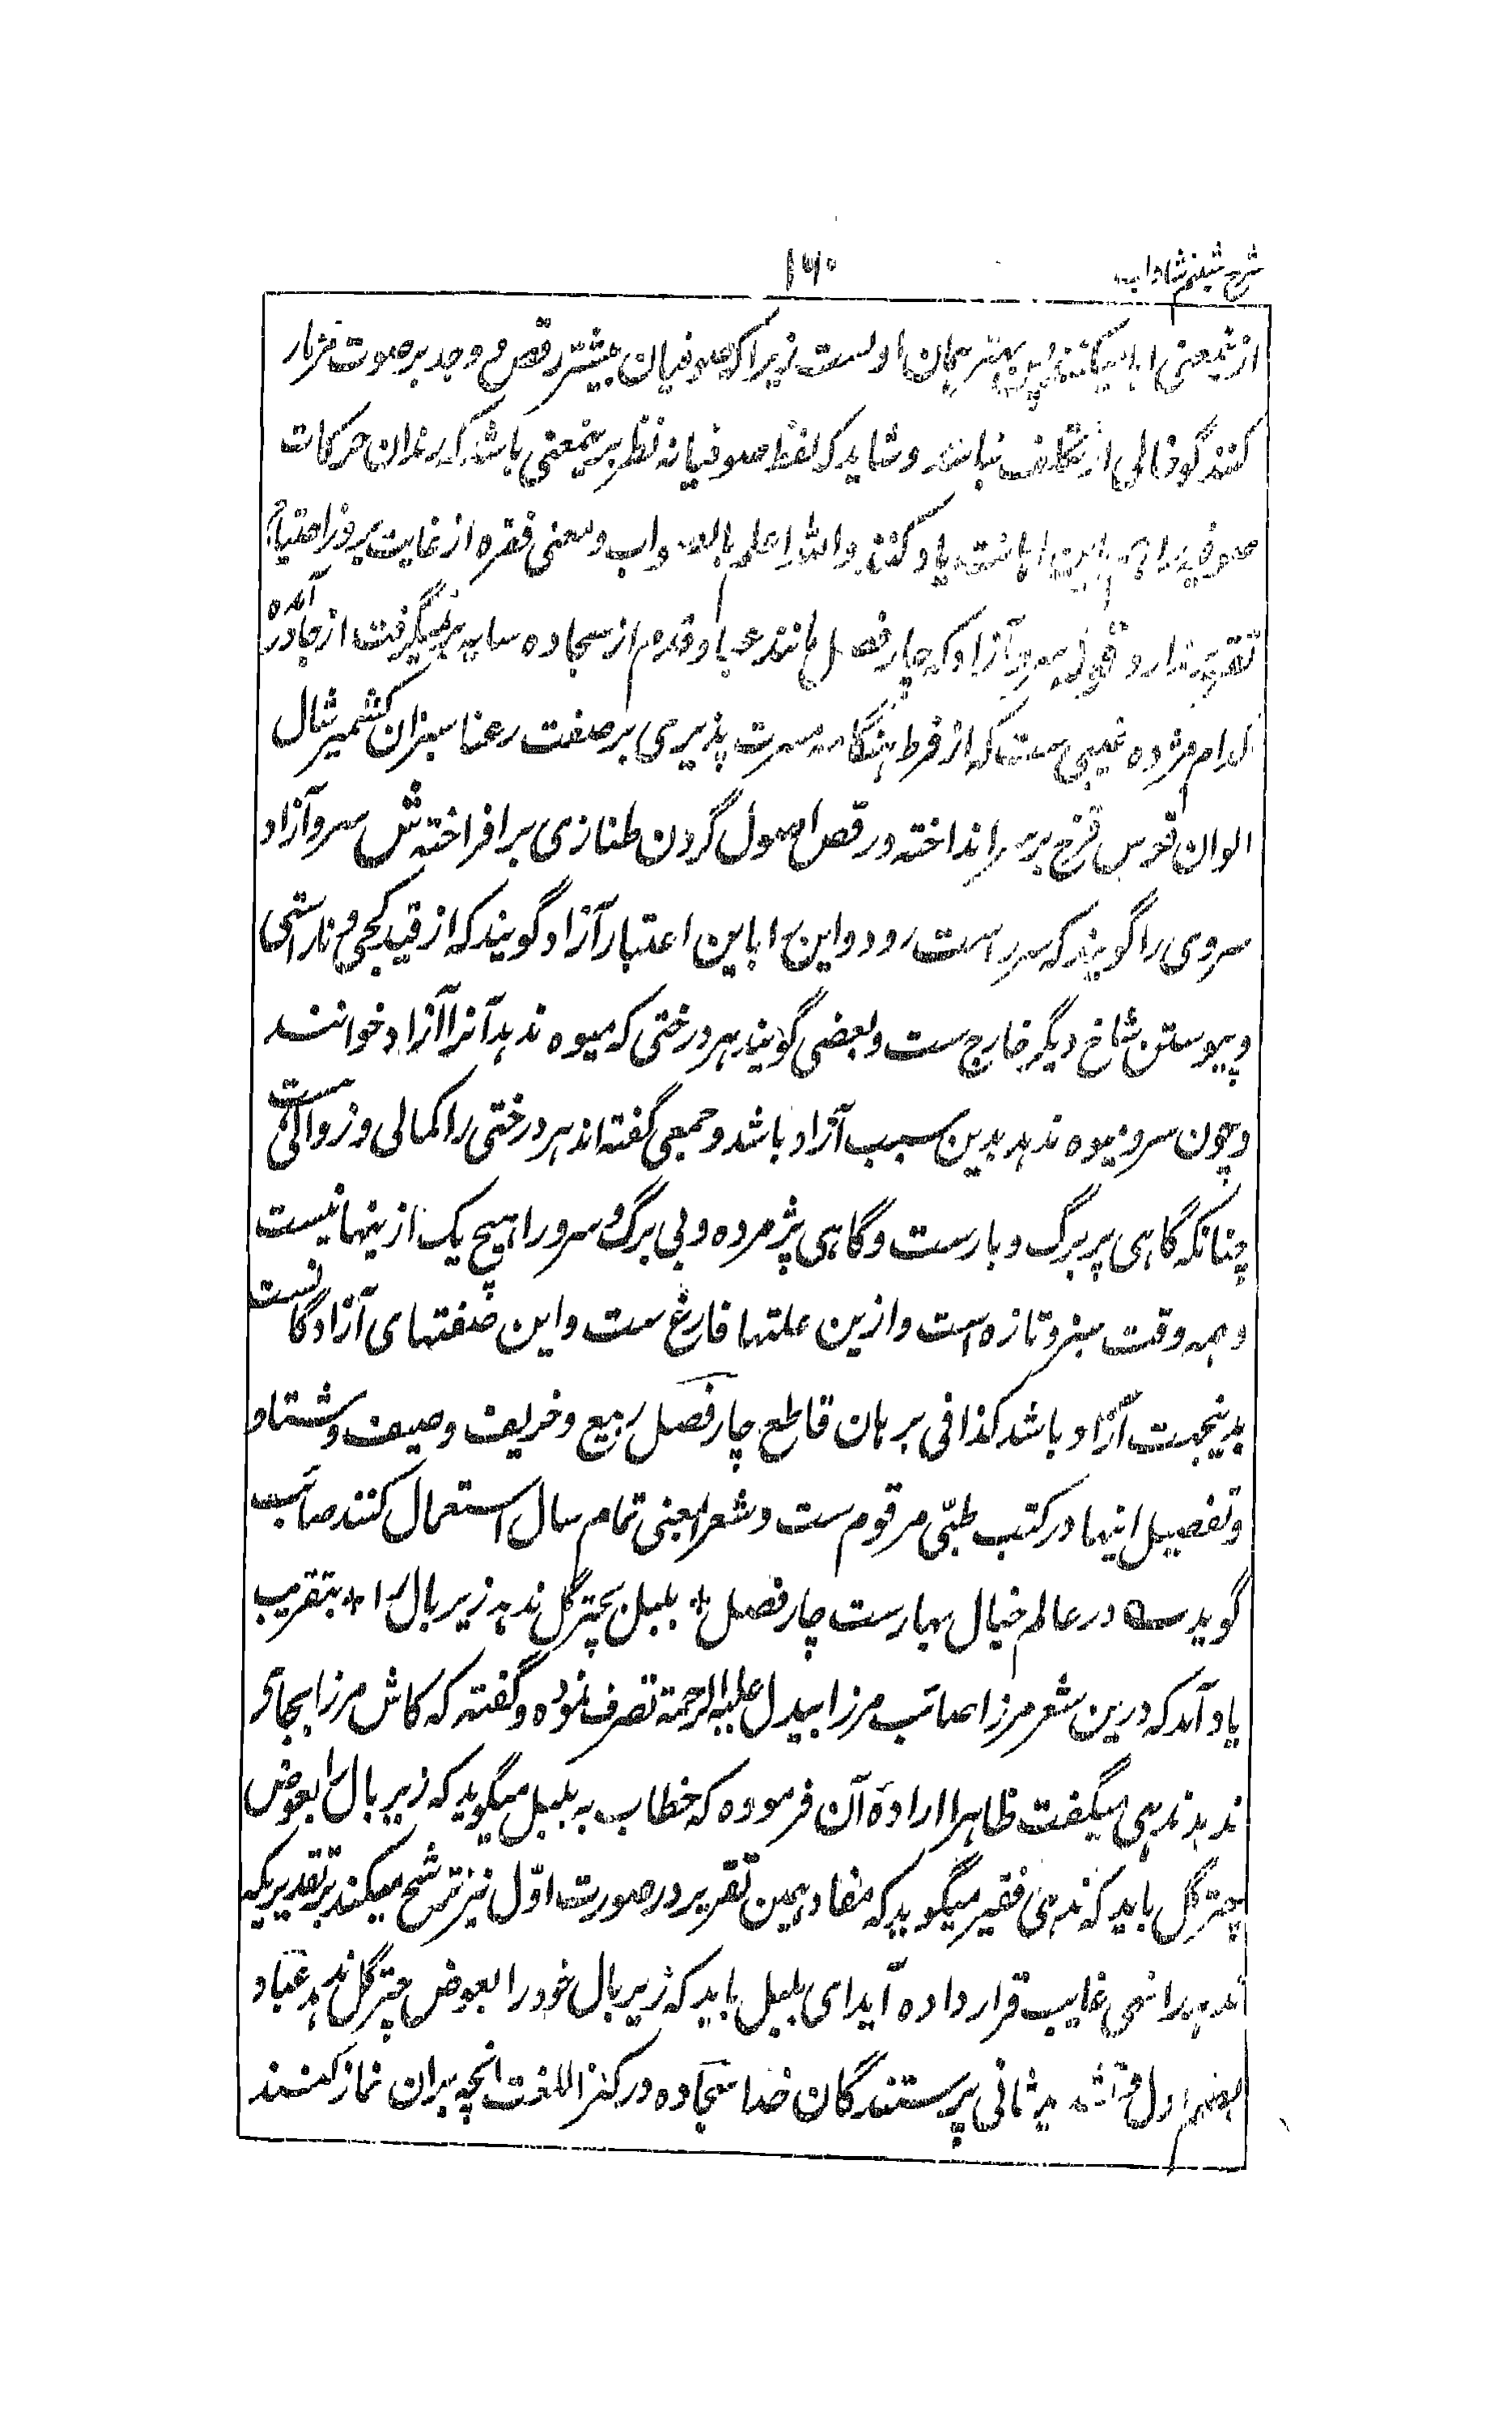 شرح شبنم شاداب
۱۶۰
ازینمعنی ابا میکنند پس بهتر همان اولست زیراکه صوفیان بیشتر رقص و وجد بر صوت مزمار
کنند گو خالی از تکلف نباشد و شاید که لفظ صوفیانه نظر برینمعنی باشد که رندان حرکات
صوفیه را باین اهانت یاد کنند والله اعلم بالصواب و معنی فقره از غایت بروز احتیاج
تقریر ندارد قوله سرو آزاد که چار فصل مانند عباد قدم از سجاده سایه برنمیگرفت از جا در آمده
کدام مژده غیبی ست که از فرط هنگامه مسرت پذیری بر صفت رعنا سبزان کشمیر شال
الوان قوس قزح بر سر انداخته در رقص اصول گردن طنازی برافراخته ش سرو آزاد
سروی را گویند که سر راست رود و این را باین اعتبار آزاد گویند که از قید کجی و ناراستی
و پیوستن شاخ دیگر خارج ست و بعضی گویند هر درختی که میوه ندهد آنرا آزاد خوانند
و چون سرو میوه ندهد بدین سبب آزاد باشد و جمعی گفته اند هر درختی را کمالی و زوالی ست
چنانکه گاهی پر برگ و بارست و گاهی پژمرده و بی برگ و سرو را هیچ یک ازینها نیست
و همه وقت سبز و تازه است و ازین علتها فارغ ست و این صفتهای آزادگانست
بدینجهت آزاد باشد کذا فی برهان قاطع چار فصل ربیع و خریف و صیف و شتا و
و تفصیل اینها در کتب طبی مرقوم ست و شعرا بمعنی تمام سال استعمال کنند صائب
گوید ؎ در عالم خیال بهارست چار فصل * بلبل بچتر گل ندهد زیر بال را * بتقریب
یاد آمد که درین شعر مرزا صائب مرزا بیدل علیه الرحمة تصرف نموده و گفته که کاش مرزا بجای
ندهد ندهی میگفت ظاهرا ارادهٔ آن فرموده که خطاب به بلبل میگوید که زیر بال را بعوض
چتر گل باید که ندهی فقیر میگوید که مفاد همین تقریر در صورت اوّل نیز ترشح میکند بر تقدیریکه
ندهد را نهی غایب قرار داده آید ای بلبل باید که زیر بال خود را بعوض چتر گل ندهد عباد
بضم اول و تشدید ثانی پرستندگان خدا سجاده در کنز اللغت انچه بران نماز کنند